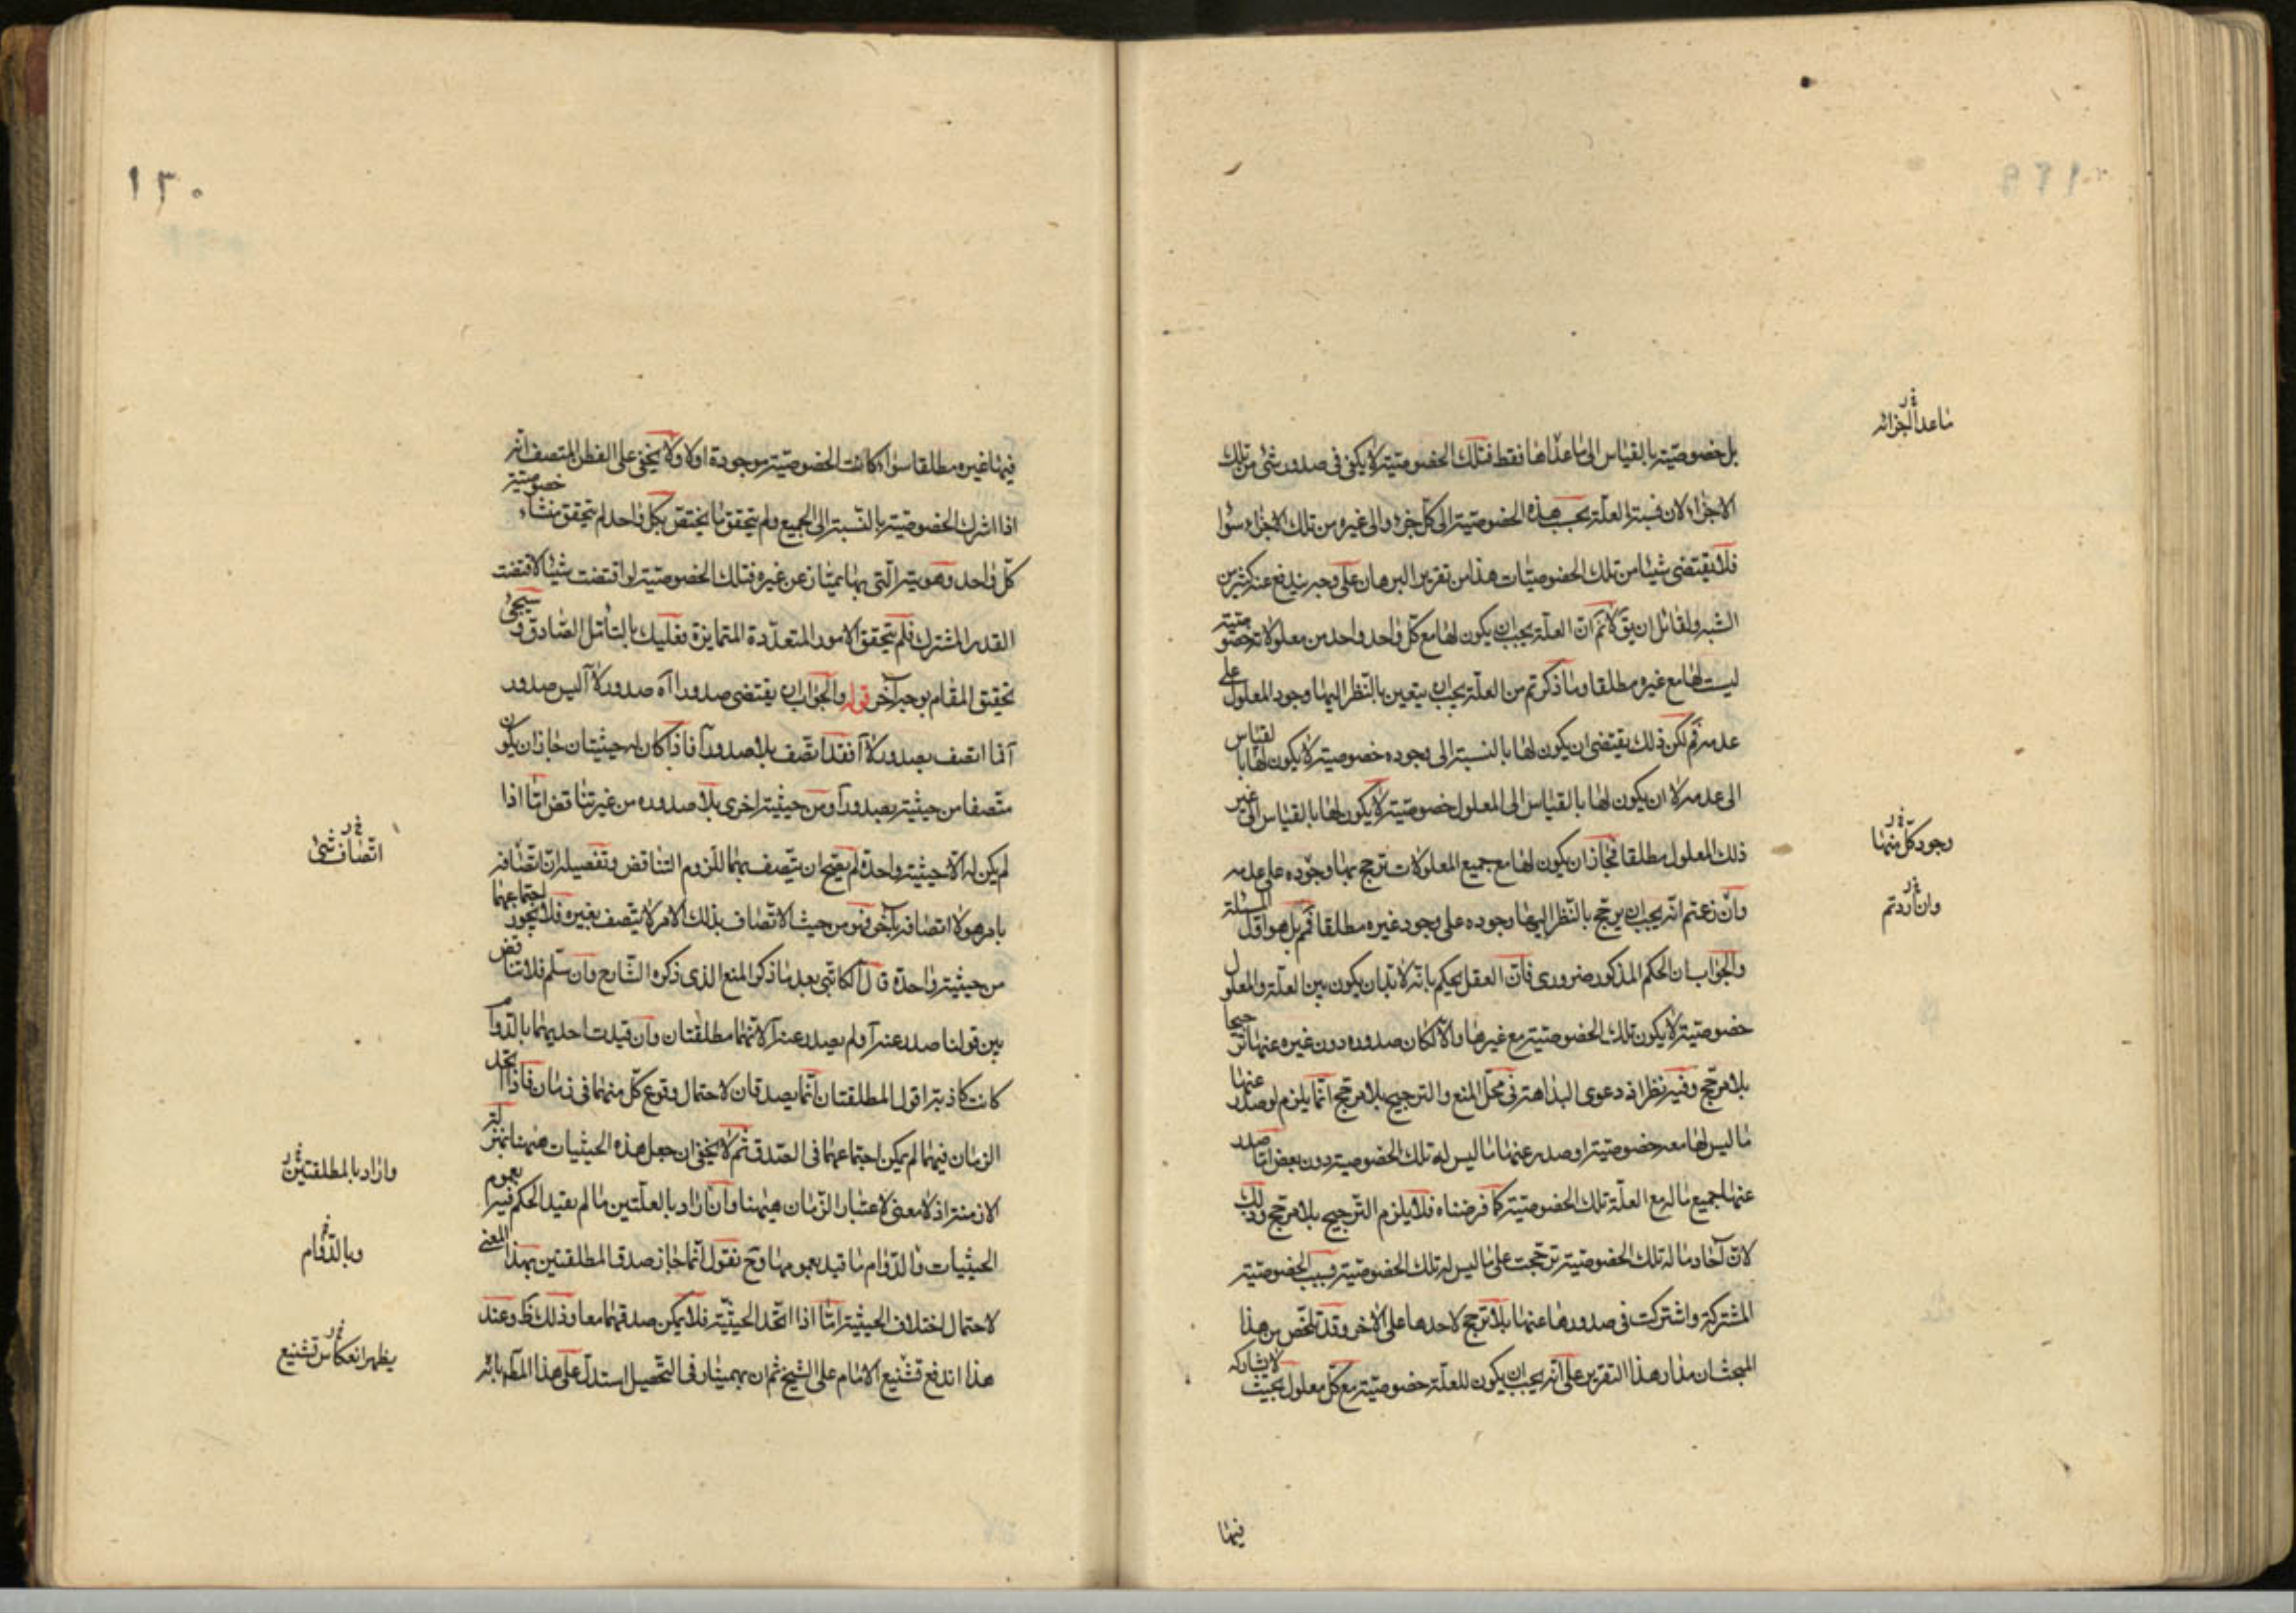 ما عدا الجزائه
بل خصوصيّته بالقياس الى ما عداها فقط فتلك الخصوصيّته لا يكفى فى صدور شئ من تلك
الاجزاء لان نسبة العلّة بحسب هذه الخصوصيّة الى كلّ جزء والى غيره من تلك الاجزاء سواء
فلا يقتضى شيئا من تلك الخصوصيّات هذا من تقرير البرهان على وجه يندفع عنه كثير من
الشبه ولقائل ان يق لانم انّ العلّة يجب ان يكون لها مع كلّ واحد واحد من معلولاته خصوصيّة
ليست لها مع غيره مطلقا وما ذكرتم من العلّة يجب ان يتعين بالنّظر اليها وجود المعلول على
عدمه فم لكن ذلك يقتضى ان يكون لها بالنسبة الى وجوده خصوصيّة لا يكون لها بالقياس
الى عدمه لا ان يكون لها بالقياس الى المعلول خصوصيّة لا يكون لها بالقياس الى غير
ذلك المعلول مطلقا فجاز ان يكون لها مع جميع المعلولات ترجح بها وجوده على عدمه
وجود كلّ منها
وان زعتم انّه يجب ان يرجّح بالنّظر اليها وجوده على وجود غيره مطلقا فم بل هو اوّل المسئلة
وان اردتم
والجواب ان الحكم المذكور ضرورى فانّ العقل يحكم بانّه لا بد ان يكون بين العلّة والمعلول
خصوصيّة لا يكون تلك الخصوصيّة مع غيرها والّا لكان صدوره دون غيره عنها ترجيحا
بلا مرجّح وفيه نظر اذ دعوى البداهة فى محلّ المنع والترجيح بلا مرجّح انّما يلزم لو صدر عنها
ما ليس لها معه خصوصيّة او صدر عنها ما ليس له تلك الخصوصيّة دون بعض امّا صدر
عنها جميع ما له مع العلّة تلك الخصوصيّة كما فرضناه فلا يلزم الترجيح بلا مرجّح وذلك
لانّ آحاد ما له تلك الخصوصيّة ترجّحت على ما ليس له تلك الخصوصيّة بسبب الخصوصيّة
المشتركة واشتركت فى صدورها عنها بلا ترجّح لاحدها على الاخر وقد تلخّص من هذا
المبحث ان مدار هذا التقرير على انّه يجب ان يكون للعلّة خصوصيّة مع كلّ معلول بحيث لا يشاركه
فيها
١٣٠
فيها غيره مطلقا سواء كانت الخصوصيّة موجودة او لا ولا يخفى على الفطن المتصف انّه
اذا اشترك الخصوصيّة بالنّسبة الى الجميع ولم يتحقق ما يختصّ بكلّ واحد لم يتحقق منشاء خصوصيّة
كلّ واحد وهويته الّتى بها يمتاز عن غيره فتلك الخصوصيّة لو اقتضت شيئا لاقتضت
القدر المشترك فلم يتحقق الامور المتعدّدة المتمايزة فعليك بالتأمّل الصّادق وسيجئ
تحقيق المقام بوجه آخر قوله والجواب ان يقتضى صدور اآه صدور لا آ ليس صدور
آ فما اتصف بصدور لا آ فقد اتّصف بلا صدور آ فاذا كان له حيثيتان جاز ان يكون
متّصفا من حيثيّة بصدور آ ومن حيثيّة اخرى بلا صدوره من غير تناقض امّا اذا
لم يكن له الّا حيثيّة واحدة لم يصحّ ان يتّصف بهما للزوم التناقض وتفصيله انّ اتّصافه
اتّصاف شئ
بامر هو لا اتصافه بآخر فهو من حيث الاتّصاف بذلك الامر لا يتّصف بغيره فلا يجوز اجتماعهما
من حيثيّة واحدة قال الكاتبى بعد ما ذكر المنع الذى ذكره الشّارح وان سلّم فلا تناقض
بين قولنا صدر عنه آ ولم يصدر عنه آ لانّهما مطلقتان وان قيدت احديهما بالدّوام
كانت كاذبة اقول المطلقتان انّما يصدقان لاحتمال وقوع كلّ منهما فى زمان فاذا اتّحد
الزمان فيهما لم يمكن اجتماعهما فى الصّدق ثم لا يخفى ان جعل هذه الحيثيات هيهنا بمنزلة
الازمنة اذ لا معنى لاعتبار الزّمان هيهنا وان اراد بالعلّتين ما لم يقيد الحكم فيه بعموم
وان اراد بالمطلقتين
الحيثيات والدّوام ما قيد بعمومها وح نقول انّما جاز صدق المطلقتين بهذا المعنى
وبالدّوام
لاحتمال اختلاف الحيثيّة امّا اذا اتّحد الحيثيّة فلا يمكن صدقهما معا وذلك ظ وعند
هذا اندفع تشنيع الامام على الشيخ ثم ان بهمنيار فى التحصيل استدلّ على هذا المط بانّه
يظهر انعكاس تشنيع